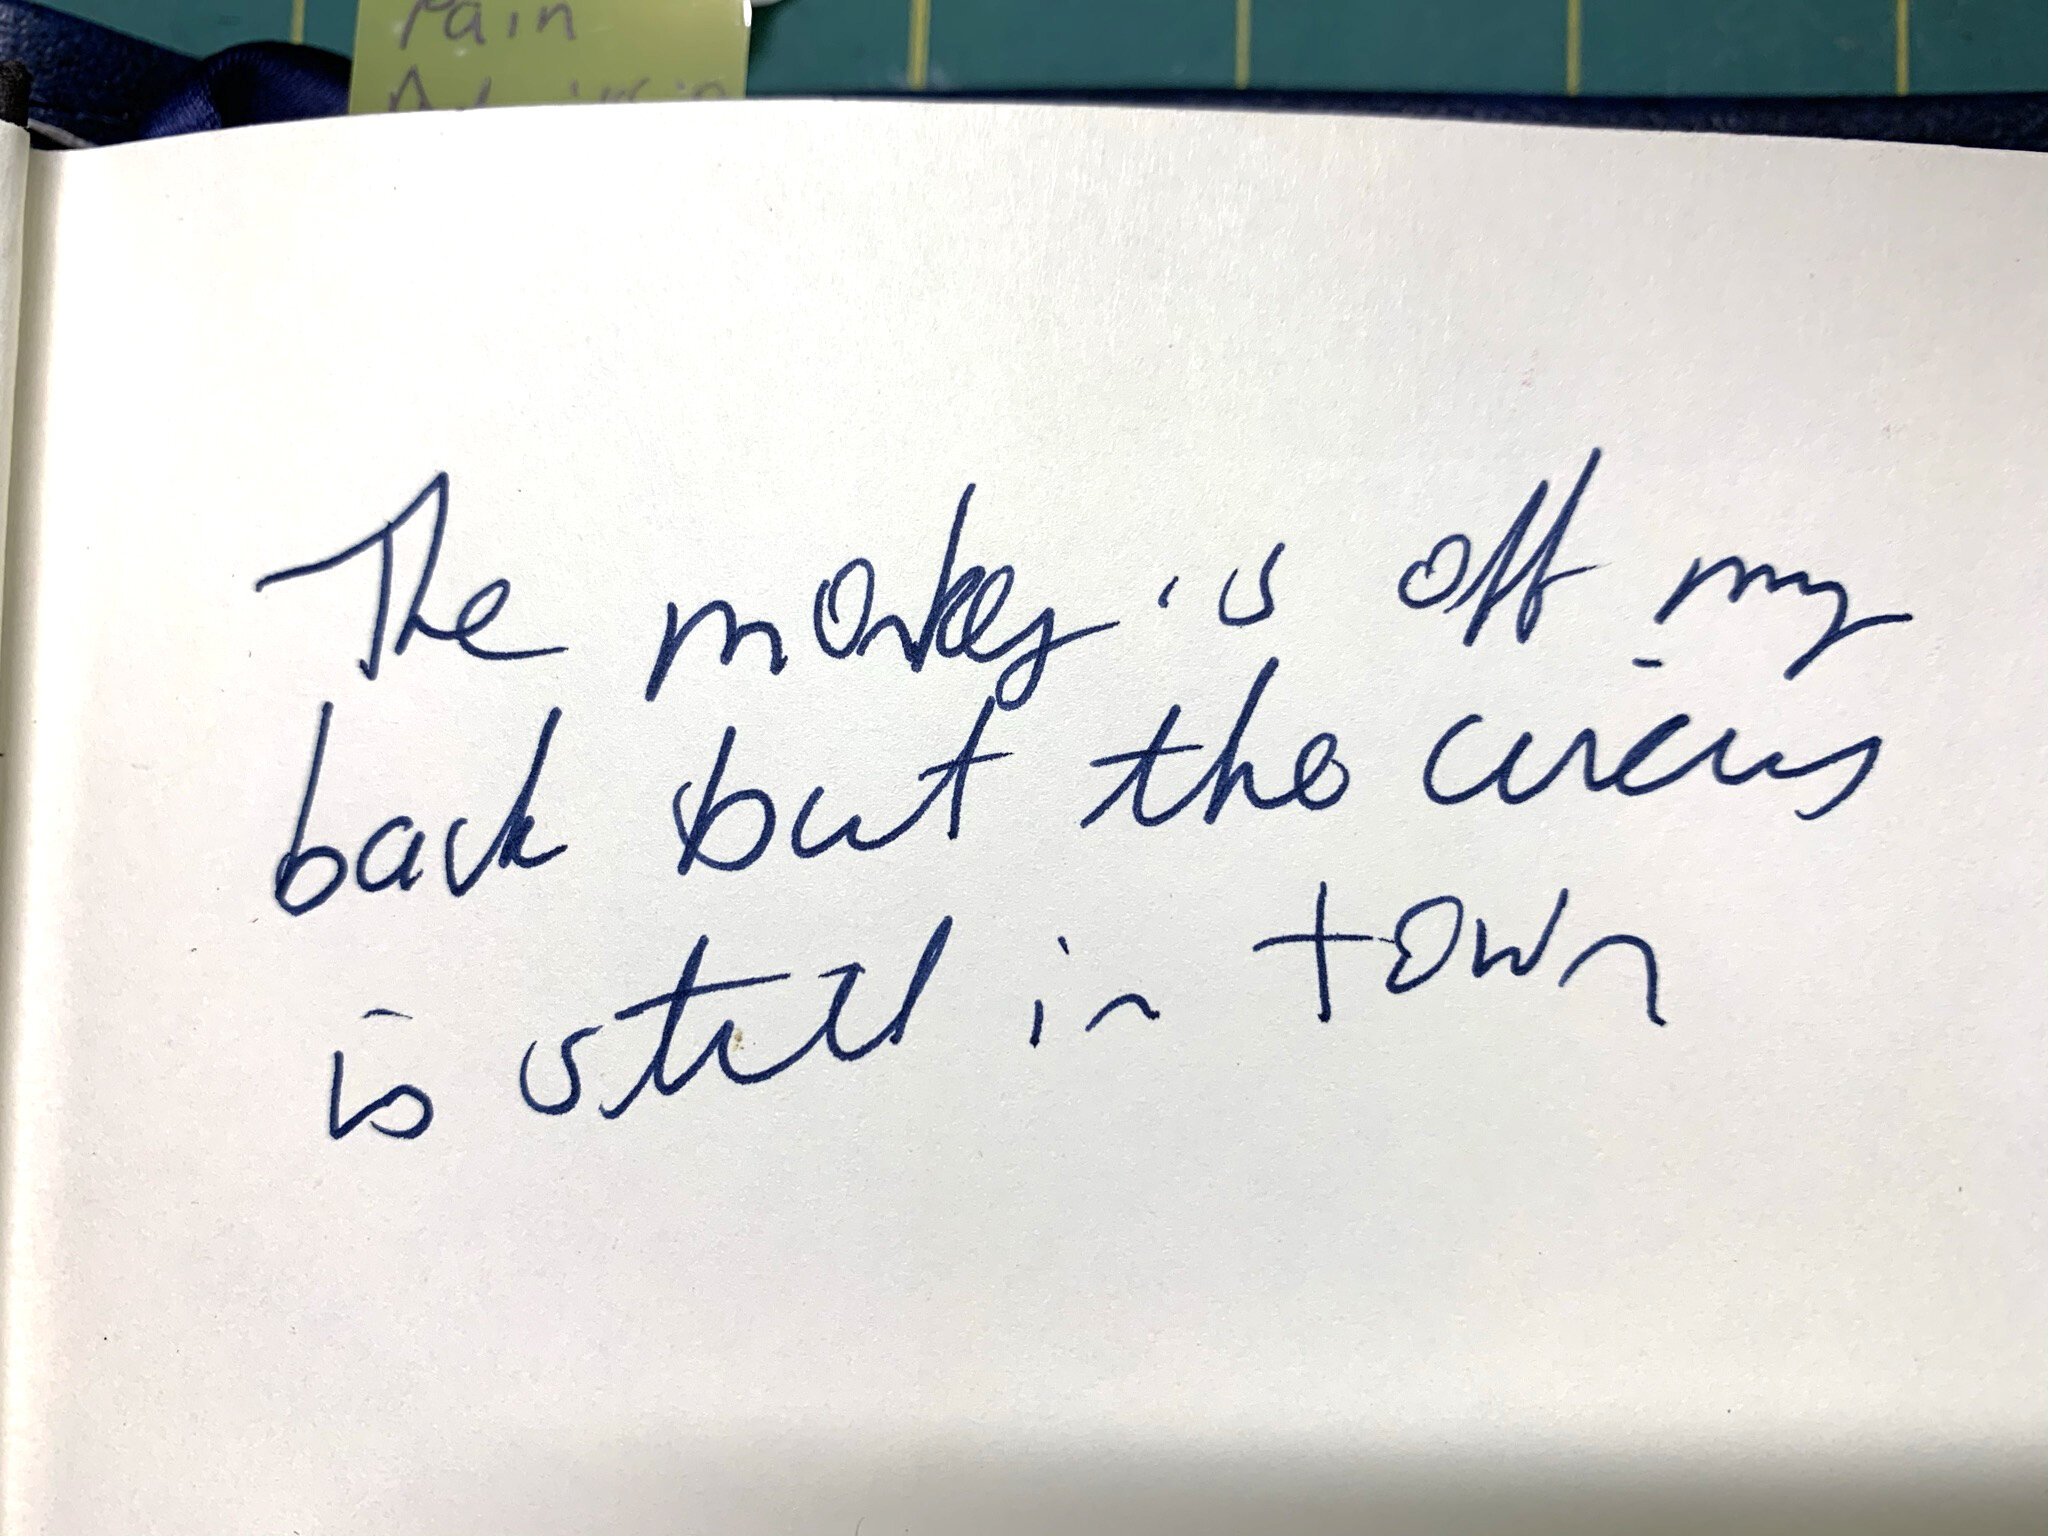 Pain
The monkey is off my
back but the circus
is still in town